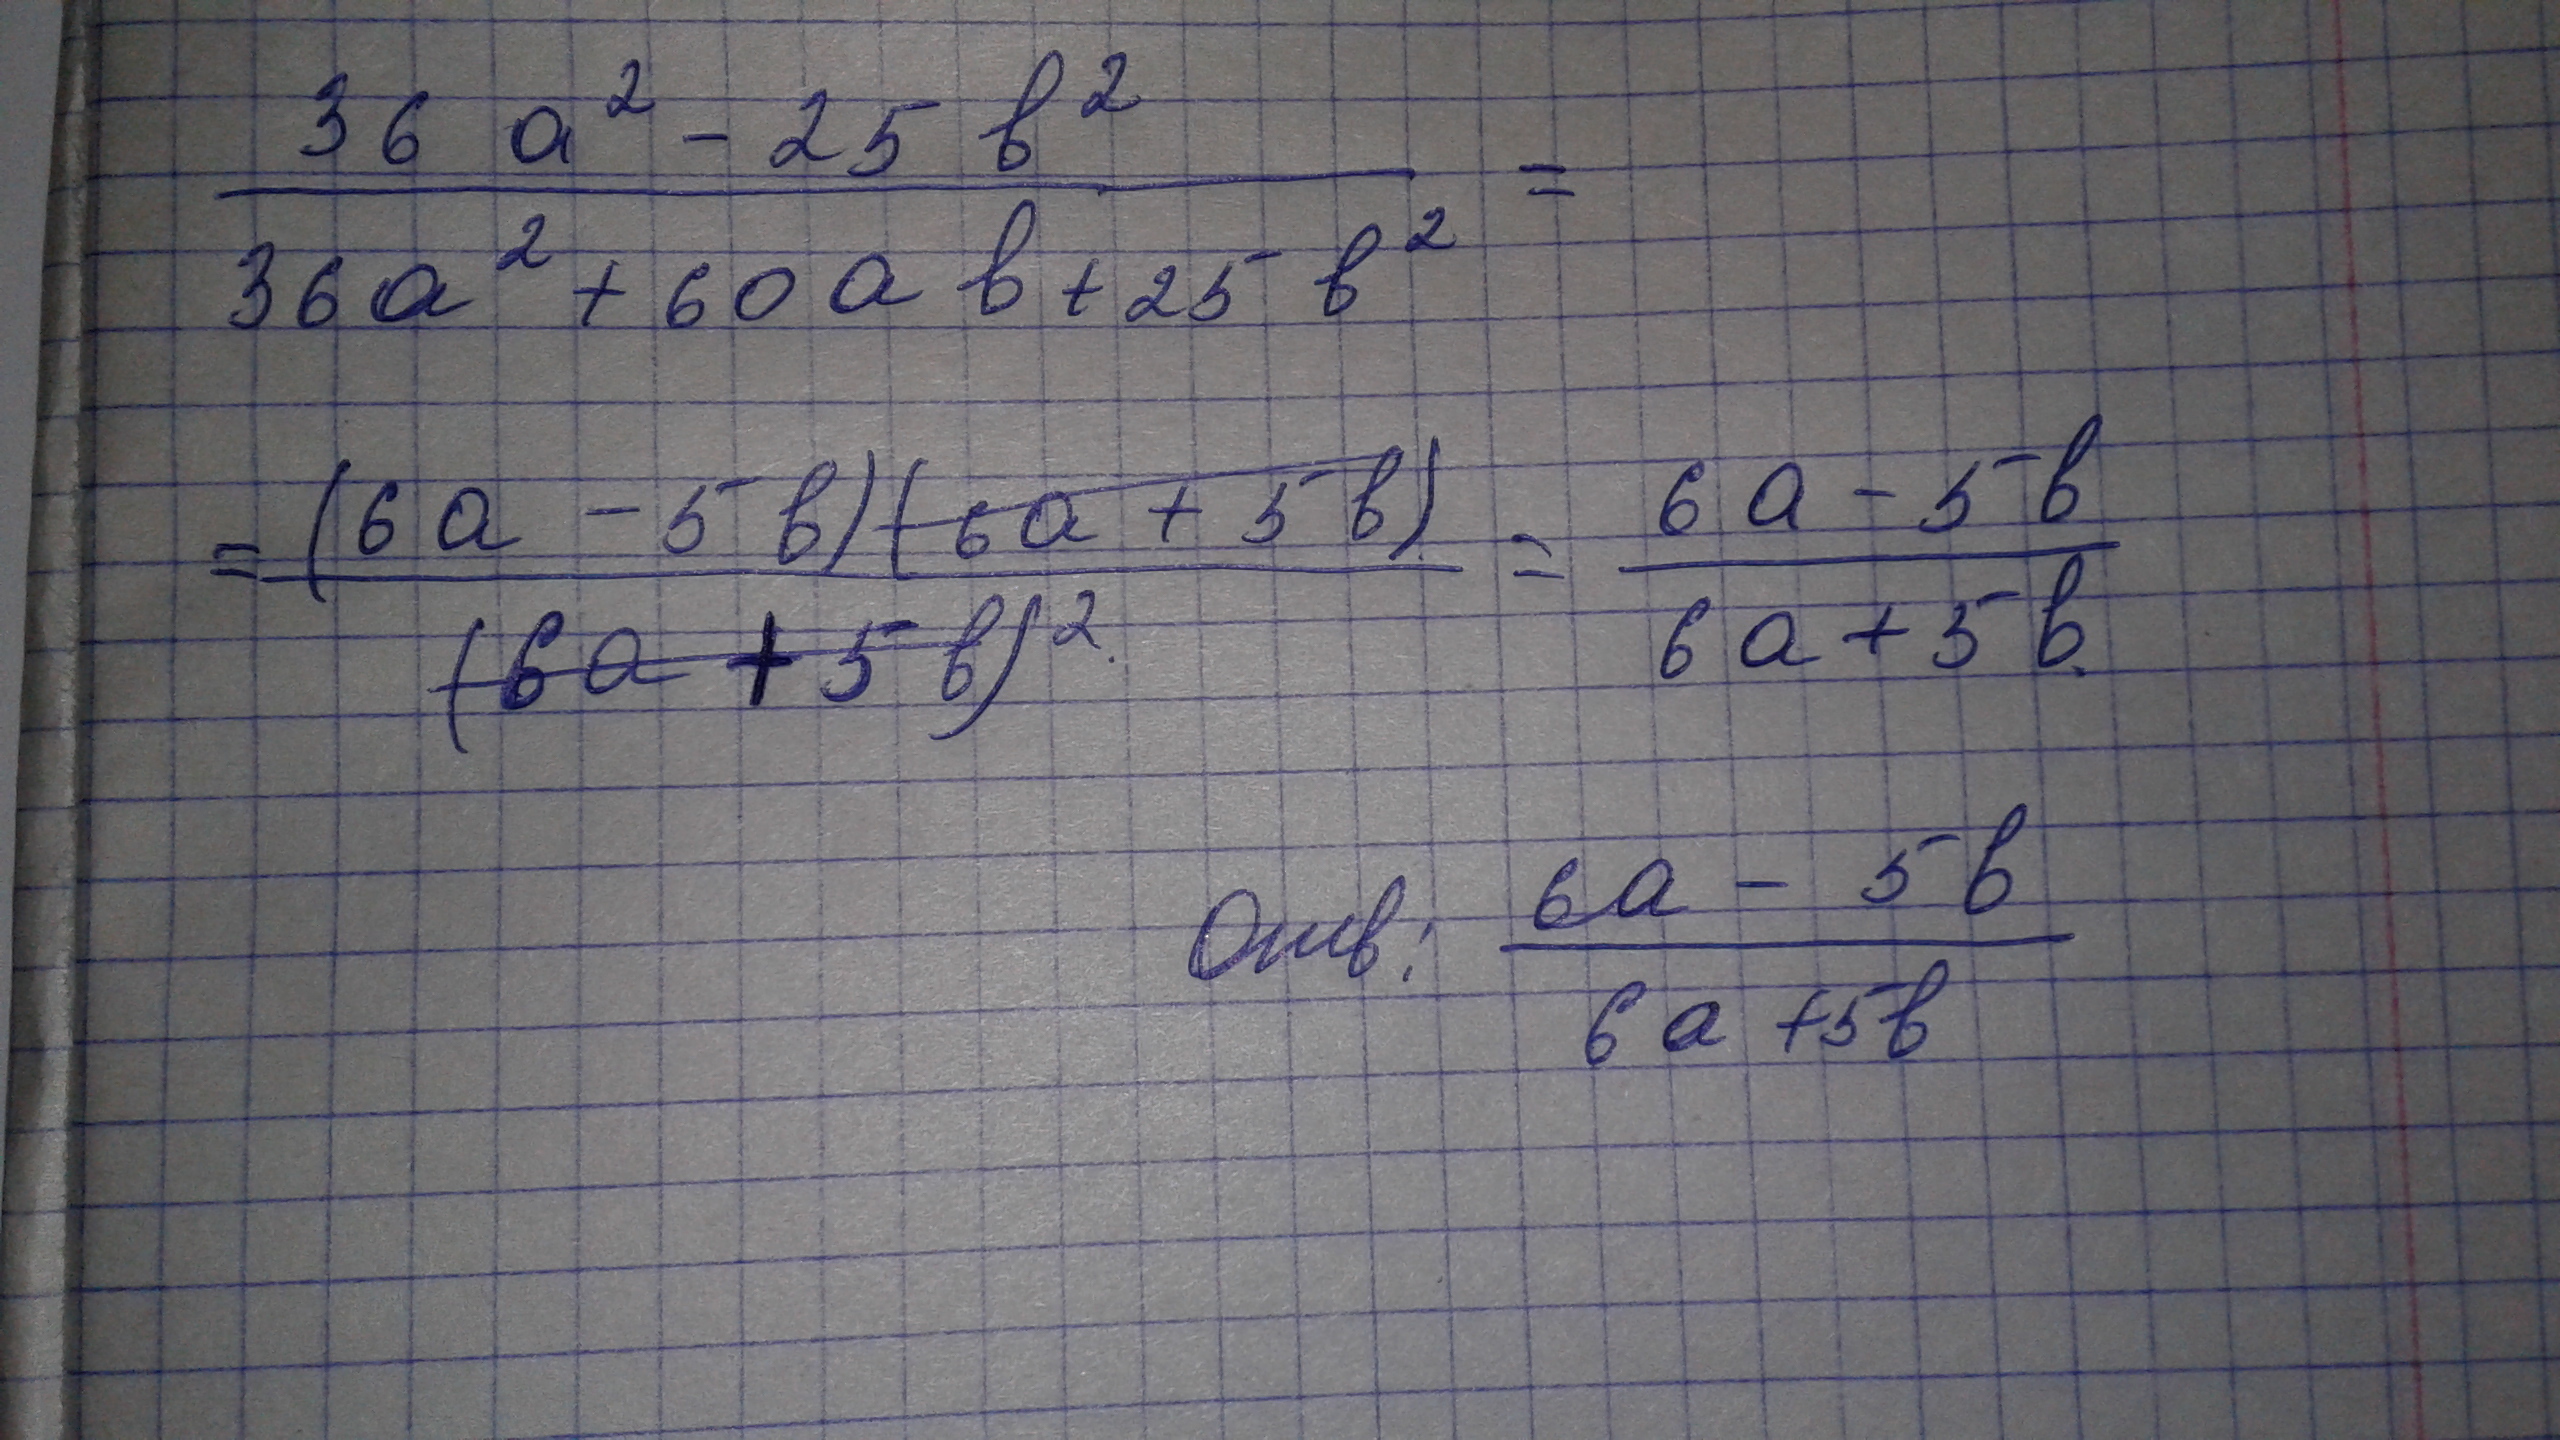 36a² - 25b²
36a² + 60ab + 25b² =
= (6a - 5b)(6a + 5b) = 6a - 5b
(6a + 5b)² 6a + 5b
Отв: 6a - 5b
6a + 5b